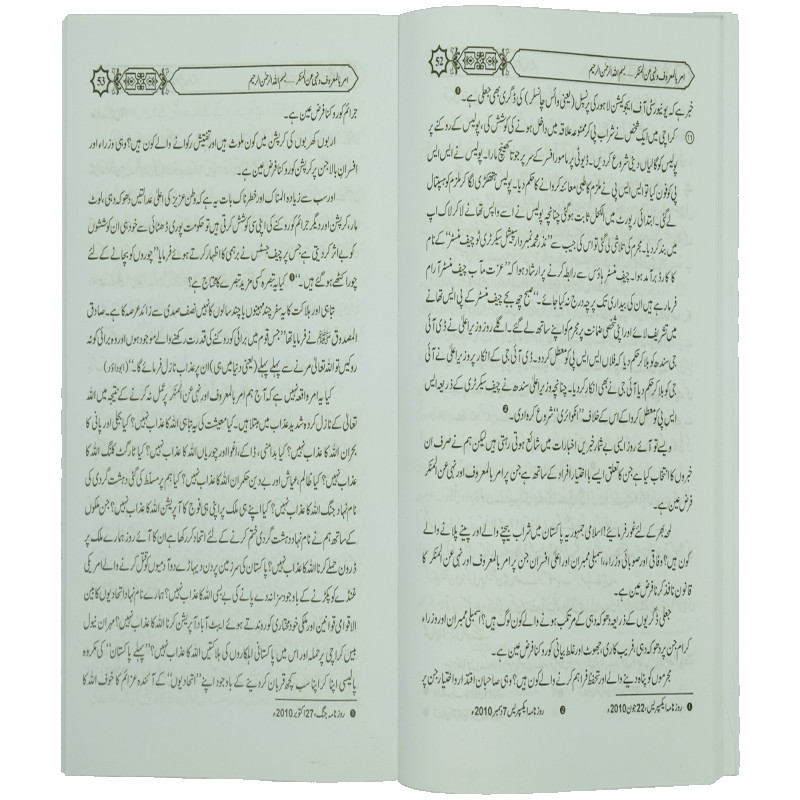 52
امر بالمعروف ونہی عن المنکر ... بسم اللہ الرحمٰن الرحیم
خبر ہے کہ یونیورسٹی آف ایجوکیشن لاہور کی پرنسپل (یعنی وائس چانسلر) کی ڈگری بھی جعلی ہے۔ ❶
⑪ کراچی میں ایک شخص نے شراب پی کر ممنوعہ علاقہ میں داخل ہونے کی کوشش کی، پولیس کے روکنے پر
پولیس کو گالیاں دینی شروع کر دیں۔ ڈیوٹی پر مامور افسر کے سر پر جوتا کھینچ مارا۔ پولیس نے ایس ایس
پی کو فون کیا تو ایس ایس پی نے ملزم کا طبی معائنہ کروانے کا حکم دیا۔ پولیس ہتھکڑی لگا کر ملزم کو ہسپتال
لے گئی۔ ابتدائی رپورٹ میں الکحل ثابت ہوگئی چنانچہ پولیس نے اسے واپس تھانے لا کر لاک اپ
میں بند کر دیا۔ مجرم کی تلاشی لی گئی تو اس کی جیب سے ”نذر محمد نمبردار سپیشل سیکرٹری ٹو چیف منسٹر“ کے نام
کا کارڈ برآمد ہوا۔ چیف منسٹر ہاؤس سے رابطہ کرنے پر ارشاد ہوا کہ ”عزت مآب چیف منسٹر آرام
فرما رہے ہیں ان کی بیداری تک پرچہ درج نہ کیا جائے۔“ صبح چھ بجے چیف منسٹر کے پی ایس تھانے
میں تشریف لائے اور اپنی شخصی ضمانت پر مجرم کو اپنے ساتھ لے گئے۔ اگلے روز وزیر اعلیٰ نے ڈی آئی
جی سندھ کو بلا کر حکم دیا کہ فلاں ایس ایس پی کو معطل کر دو۔ ڈی آئی جی کے انکار پر وزیر اعلیٰ نے آئی
جی کو بلا کر حکم دیا آئی جی نے بھی انکار کر دیا۔ چنانچہ وزیر اعلیٰ سندھ نے چیف سیکرٹری کے ذریعہ ایس
ایس پی کو معطل کروا کے اس کے خلاف ”انکوائری“ شروع کروا دی۔ ❷
ویسے تو آئے روز ایسی بے شمار خبریں اخبارات میں شائع ہوتی رہتی ہیں لیکن ہم نے صرف ان
خبروں کا انتخاب کیا ہے جن کا تعلق ایسے بااختیار افراد کے ساتھ ہے جن پر امر بالمعروف اور نہی عن المنکر
فرض عین ہے۔
لمحہ بھر کے لئے غور فرمایئے! اسلامی جمہوریہ پاکستان میں شراب بیچنے والے اور پینے پلانے والے
کون ہیں؟ وفاقی اور صوبائی وزراء، اسمبلی ممبران اور اعلیٰ افسران جن پر امر بالمعروف اور نہی عن المنکر کا
قانون نافذ کرنا فرض عین ہے۔
جعلی ڈگریوں کے ذریعہ دھوکہ دہی کے مرتکب ہونے والے کون لوگ ہیں؟ اسمبلی ممبران اور وزراء
کرام جن پر دھوکہ دہی، فریب کاری، جھوٹ اور غلط بیانی کو روکنا فرض عین ہے۔
مجرموں کو پناہ دینے والے اور تحفظ فراہم کرنے والے کون ہیں؟ وہی صاحبان اقتدار و اختیار جن پر
❶ روزنامہ ایکسپریس، 22 جون 2010ء ❷ روزنامہ ایکسپریس 7 دسمبر 2010ء
امر بالمعروف ونہی عن المنکر ... بسم اللہ الرحمٰن الرحیم
53
جرائم کو روکنا فرض عین ہے۔
اربوں کھربوں کی کرپشن میں کون ملوث ہیں اور تفتیش رکوانے والے کون ہیں؟ وہی وزراء اور
افسران بالا جن پر کرپشن کو روکنا فرض عین ہے۔
اور سب سے زیادہ المناک اور خطرناک بات یہ ہے کہ وطن عزیز کی اعلیٰ عدالتیں دھوکہ دہی، لوٹ
مار، کرپشن اور دیگر جرائم کو روکنے کی اپنی سی کوشش کرتی ہیں تو حکومت پوری ڈھٹائی سے خود ہی ان کوششوں
کو بے اثر کر دیتی ہے جس پر چیف جسٹس نے برہمی کا اظہار کرتے ہوئے فرمایا ”چوروں کو بچانے کے لئے
چور اکٹھے ہو گئے ہیں۔“ ❶ کیا یہ تبصرہ کسی مزید تبصرے کا محتاج ہے؟
تباہی اور ہلاکت کا یہ سفر چند مہینوں یا چند سالوں کا نہیں نصف صدی سے زائد عرصہ کا ہے۔ صادق
المصدوق ﷺ نے فرمایا تھا ”جس قوم میں برائی کو روکنے کی قدرت رکھنے والے موجود ہوں اور برائی کو نہ
روکیں تو اللہ تعالیٰ مرنے سے پہلے پہلے (یعنی دنیا میں ہی) ان پر عذاب نازل فرمائے گا۔“ (ابوداؤد)
کیا یہ امر واقعہ نہیں ہے کہ آج ہم امر بالمعروف اور نہی عن المنکر پر عمل نہ کرنے کے نتیجہ میں اللہ
تعالیٰ کے نازل کردہ شدید عذاب میں مبتلا ہیں۔ کیا معیشت کی یہ تباہی اللہ کا عذاب نہیں؟ کیا بجلی اور پانی کا
بحران اللہ کا عذاب نہیں؟ کیا بدامنی، ڈاکے، اغوا اور چوریاں اللہ کا عذاب نہیں؟ کیا ٹارگٹ کلنگ اللہ کا
عذاب نہیں؟ کیا ظالم، عیاش اور بے دین حکمران اللہ کا عذاب نہیں؟ کیا ہم پر مسلط کی گئی دہشت گردی کی
نام نہاد جنگ اللہ کا عذاب نہیں؟ کیا اپنے ہی ملک پر اپنی ہی فوج کا آپریشن اللہ کا عذاب نہیں؟ جن ملکوں
کے ساتھ ہم نے نام نہاد دہشت گردی ختم کرنے کے لئے اتحاد کر رکھا ہے ان کا آئے روز ہمارے ملک پر
ڈرون حملے کرنا اللہ کا عذاب نہیں؟ پاکستان کی سرزمین پر دن دیہاڑے دو آدمیوں کو قتل کرنے والے امریکی
غنڈے کو پکڑنے کے باوجود سزا نہ دے پانے کی بے بسی اللہ کا عذاب نہیں؟ ہمارے نام نہاد اتحادیوں کا بین
الاقوامی قوانین اور ملکی خود مختاری کو روندتے ہوئے ایبٹ آباد آپریشن کرنا اللہ کا عذاب نہیں؟ مہران نیول
بیس کراچی پر حملہ اور اس میں پاکستانی اہلکاروں کی ہلاکتیں اللہ کا عذاب نہیں؟ ”پہلے پاکستان“ کی مکروہ
پالیسی اپنا کر اپنا سب کچھ قربان کر دینے کے باوجود اپنے ”اتحادیوں“ کے آئندہ عزائم کا خوف اللہ کا
❶ روزنامہ جنگ، 27 اکتوبر 2010ء